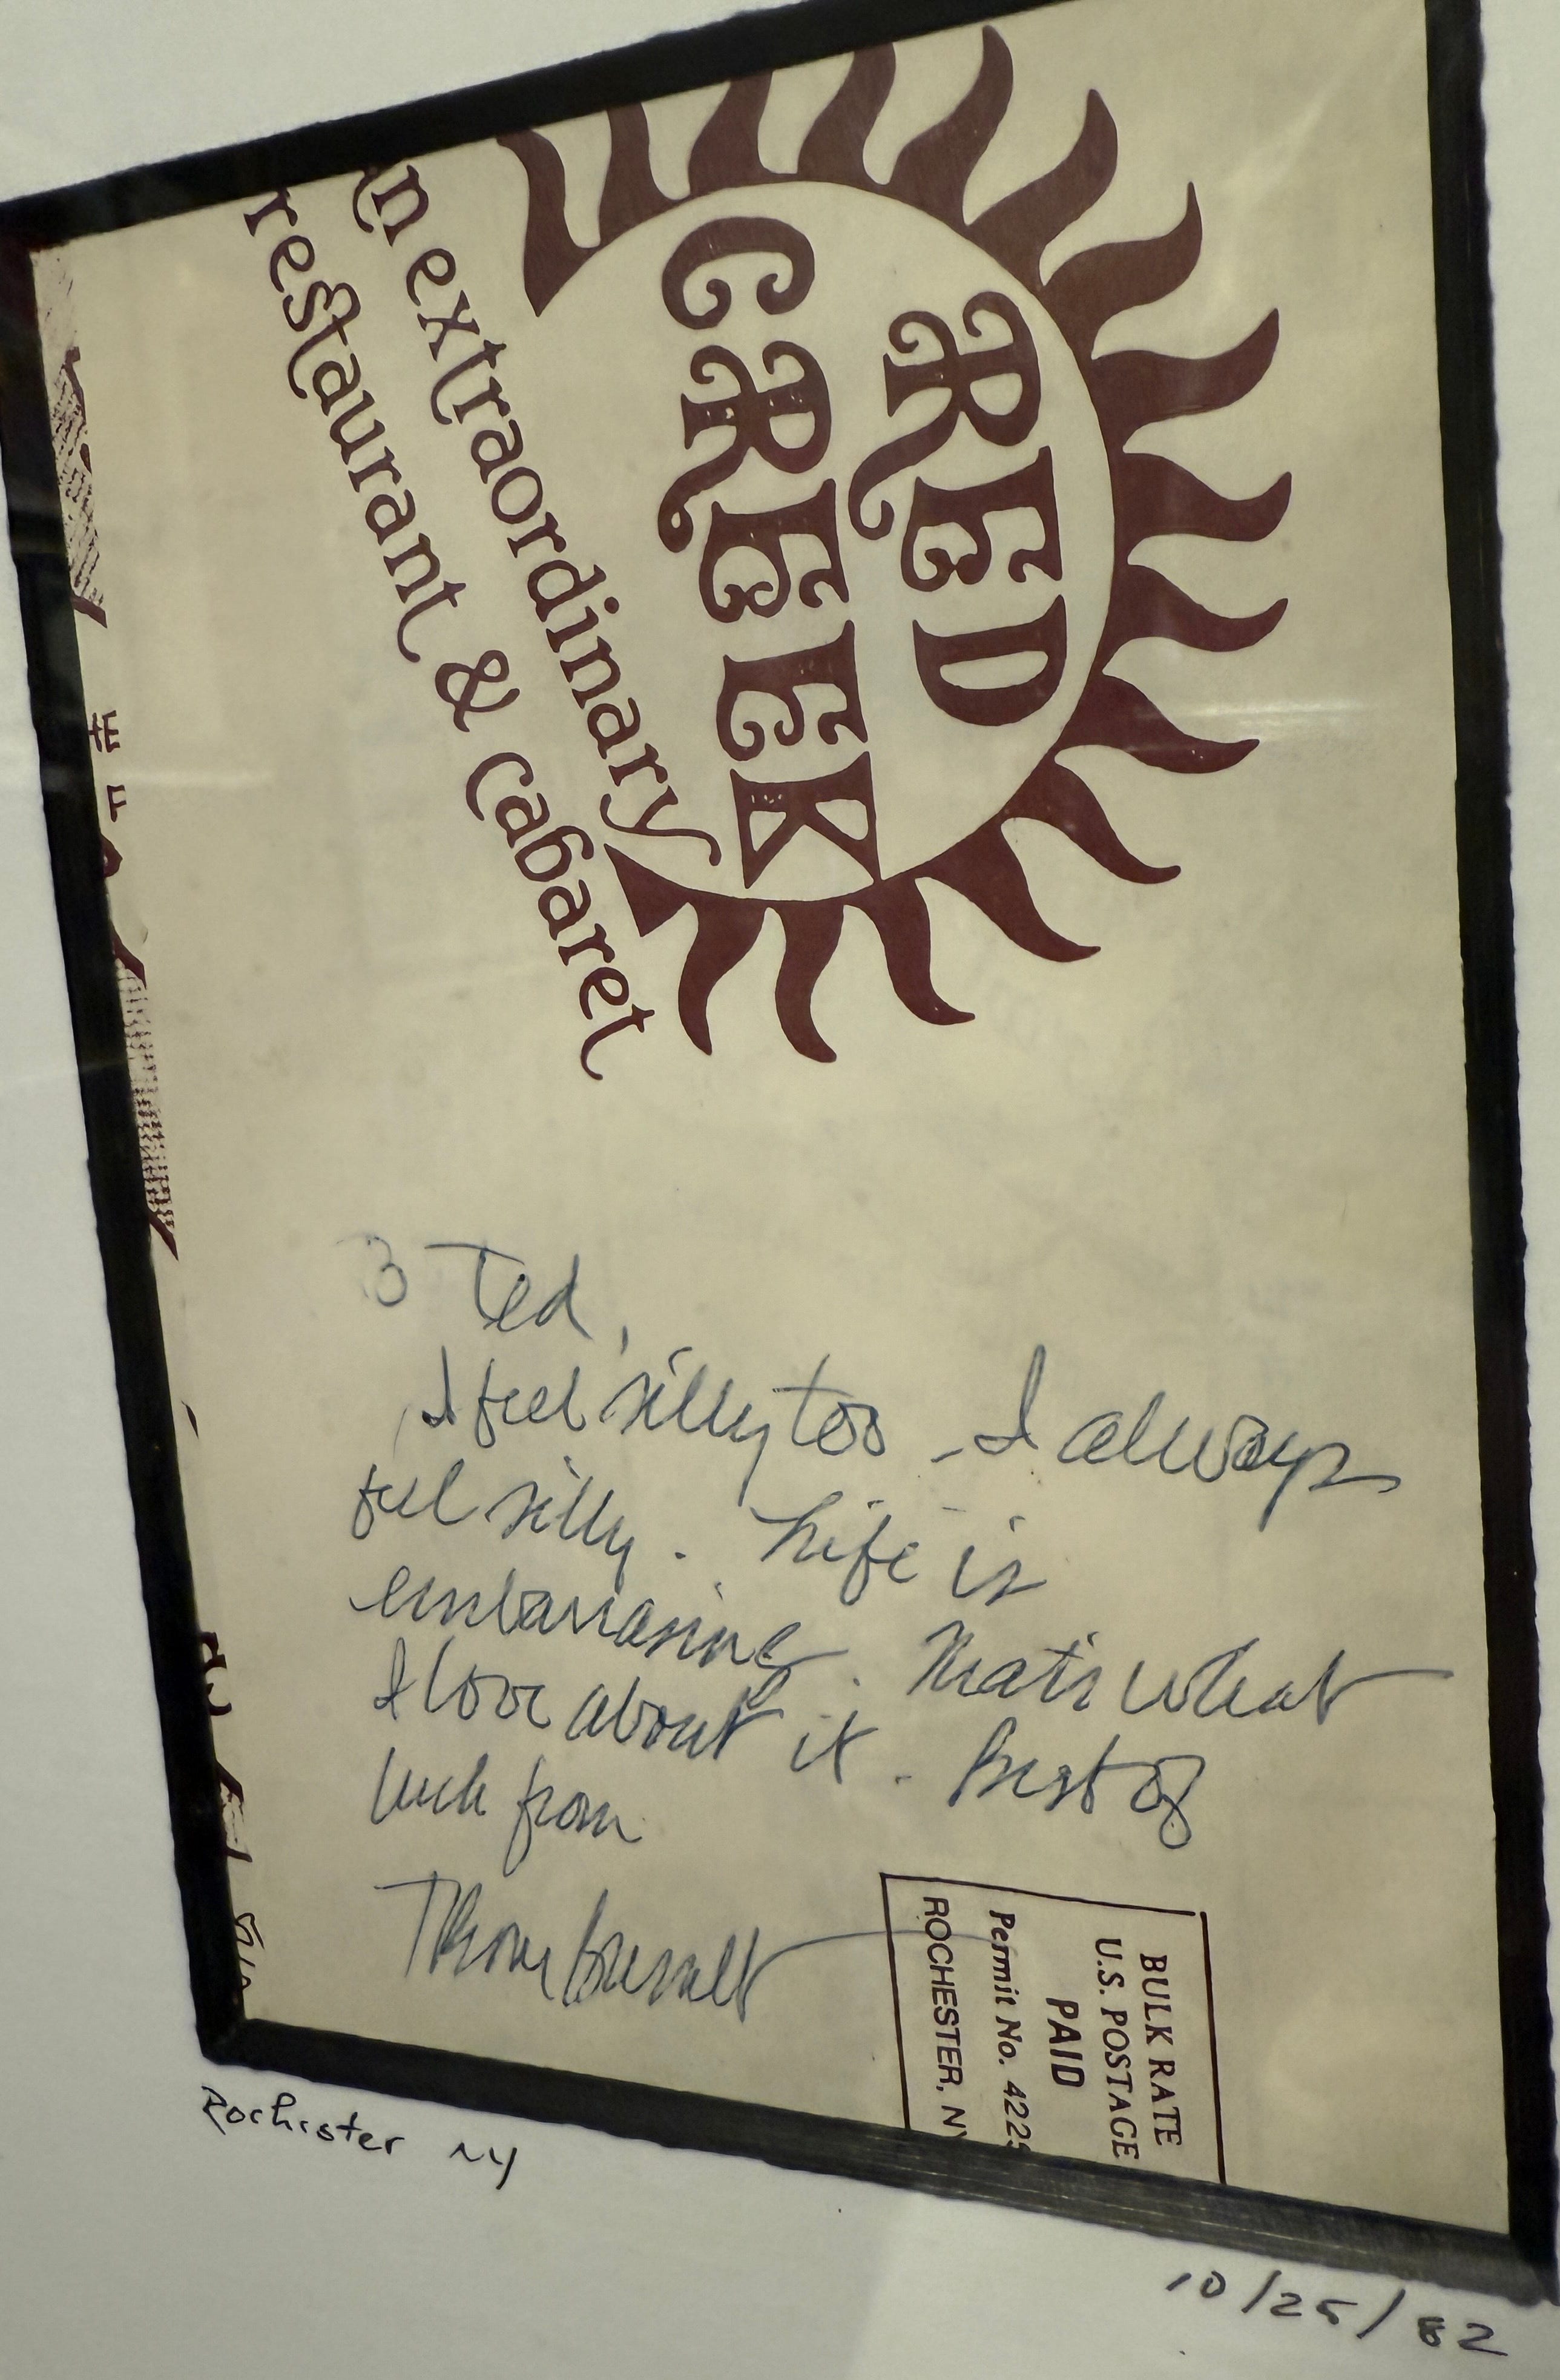 RED
CREEK
an extraordinary
restaurant & cabaret
Ted,
I feel silly too - I always
feel silly. Life is
embarrasing. That's what
I love about it. Best of
luck from
BULK RATE
U.S. POSTAGE
PAID
Permit No. 422
ROCHESTER, NY
Rochester NY
10/25/82